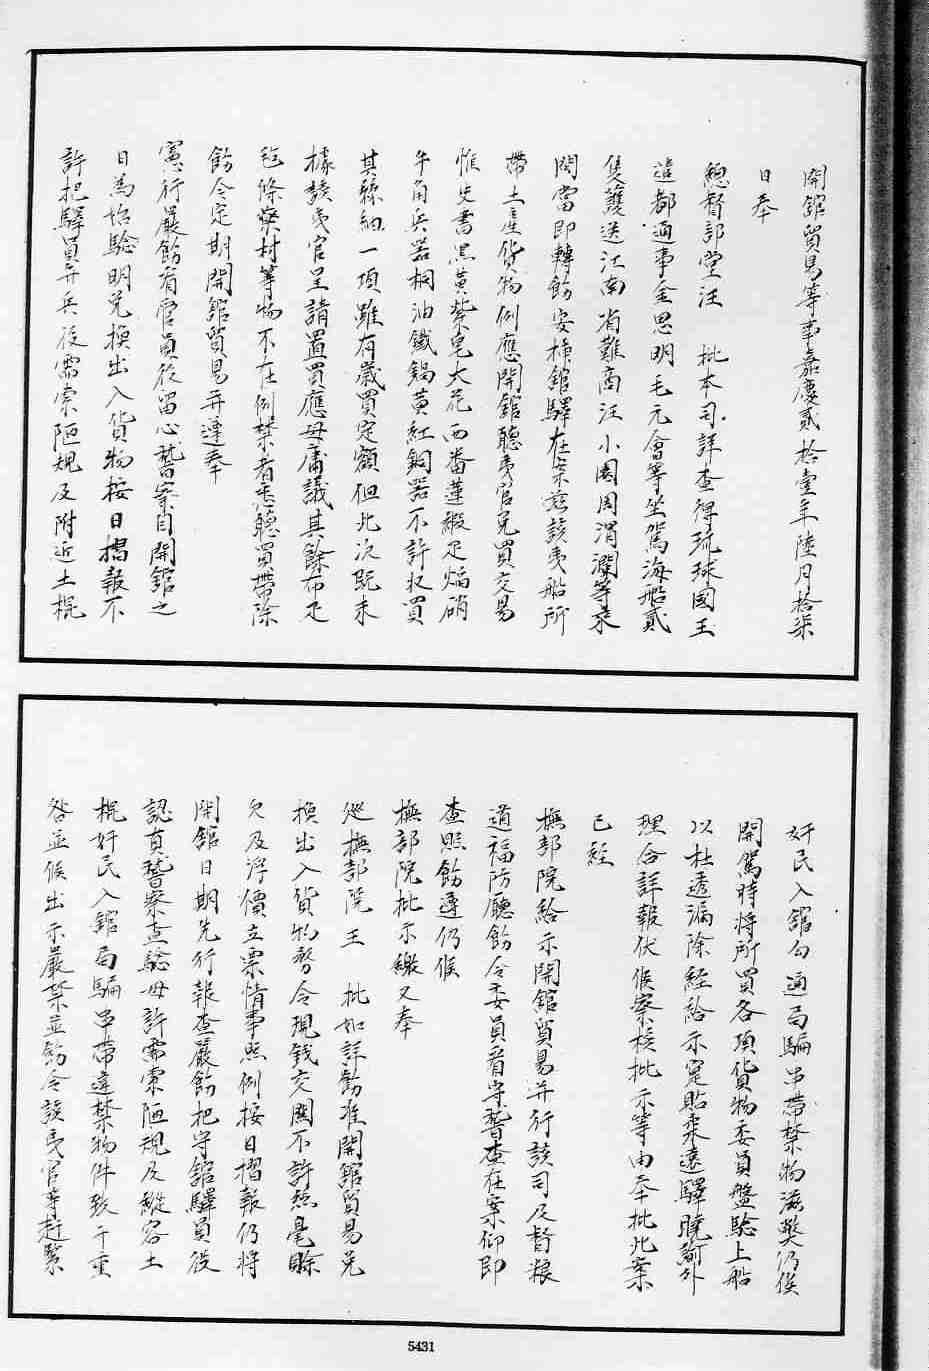 開館貿易等事嘉慶貳拾壹年陸月拾柒
日奉
總督部堂汪　批本司詳查得琉球國王
遣都通事金思明毛元會等坐駕海船貳
隻護送江南省難商汪小園周渭瀾等來
閩當即轉飭安揷館驛在案玆該夷船所
帶土產貨物例應開館聽夷官兌買交易
惟史書黑黃紫皂大花西番蓮緞疋焰硝
牛角兵器桐油鐵鍋黃紅銅器不許收買
其絲紬一項雖有歲買定額但此次既未
據該夷官呈請置買應毋庸議其餘布疋
毡條藥村等物不在例禁者悉聽買帶除
飭令定期開館貿易并遵奉
憲行嚴飭有官員役留心稽察自開館之
日為始驗明兌換出入貨物按日摺報不
許把驛員弁兵役需索陋規及附近土棍
奸民入館勾通局騙串帶禁物滋獘仍俟
開駕時將所買各項貨物委員盤驗上船
以杜透漏除經給示寔貼柔遠驛曉諭外
理合詳報伏候察核批示等由奉批此案
已經
撫部院給示開館貿易并行該司及督粮
道福防廳飭令委員看守稽查在案仰即
查照飭遵仍候
撫部院批示繳又奉
廵撫部院王　批如詳勷准開館貿易兌
換出入貨物務令現錢交關不許絲毫賒
欠及浮價立票情事照例按日摺報仍將
開館日期先行報查嚴飭把守館驛員役
認真稽察查驗毋許需索陋規及縱容土
棍奸民入館局騙串帶違禁物件致干重
咎並候出示嚴禁並飭令該夷官等趕緊
5431